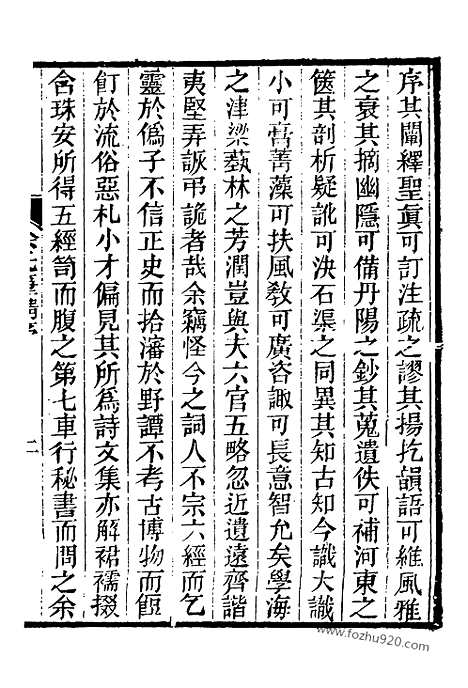 序其闡繹聖眞可訂注疏之謬其揚扢韻語可維風雅
之衰其摘幽隱可備丹陽之鈔其蒐遺佚可補河東之
篋其剖析疑訛可決石渠之同異其知古知今識大識
小可膏菩藻可扶風敎可廣咨諏可長意智允矣學海
之津梁蓺林之芳潤豈與夫六官五略忽近遺遠齊諧
夷堅弄詼弔詭者哉余竊怪今之詞人不宗六經而乞
靈於僞子不信正史而拾瀋於野譚不考古博物而飣
飣於流俗惡札小才偏見其所爲詩文集亦解裙襦掇
含珠安所得五經笥而腹之第七車行秘書而問之余
序
二
www.fozhu920.com